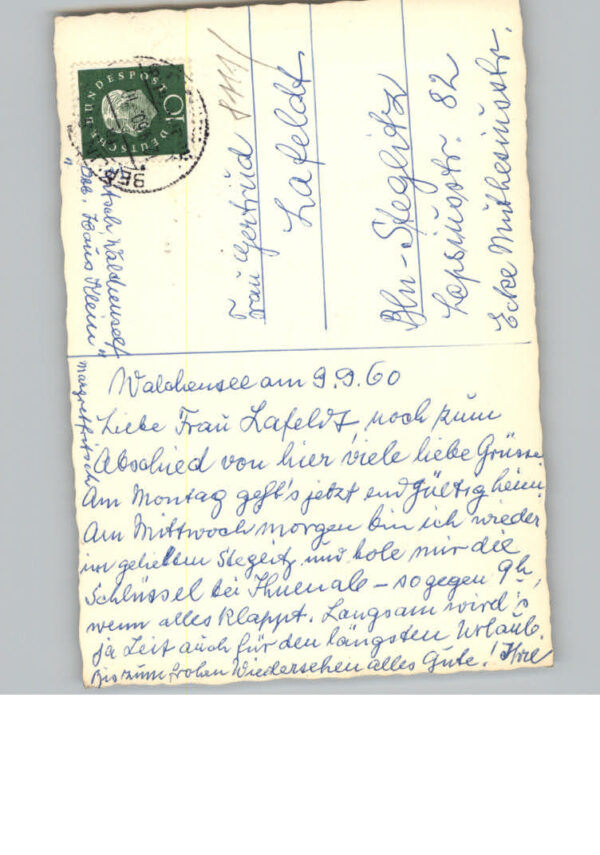 Walchensee am 9.9.60
Liebe Frau Lafeldt, noch zum
Abschied von hier viele liebe Grüsse
Am Montag geht's jetzt endgültig heim.
Am Mittwoch morgen bin ich wieder
im geliebten Steglitz und hole mir die
Schlüssel bei Ihnen ab – so gegen 9h,
wenn alles klappt. Langsam wird's
ja Zeit auch für den längsten Urlaub.
Bis zum frohen Wiedersehen alles Gute! Ihre
Margret Fritsch
Fritsch, Walchensee
bei "Haus Klein"
DEUTSCHE BUNDESPOST
10
Frau Gertrud
Lafeldt
Bln-Steglitz
Lepsiusstr. 82
Ecke Muthesiusstr.